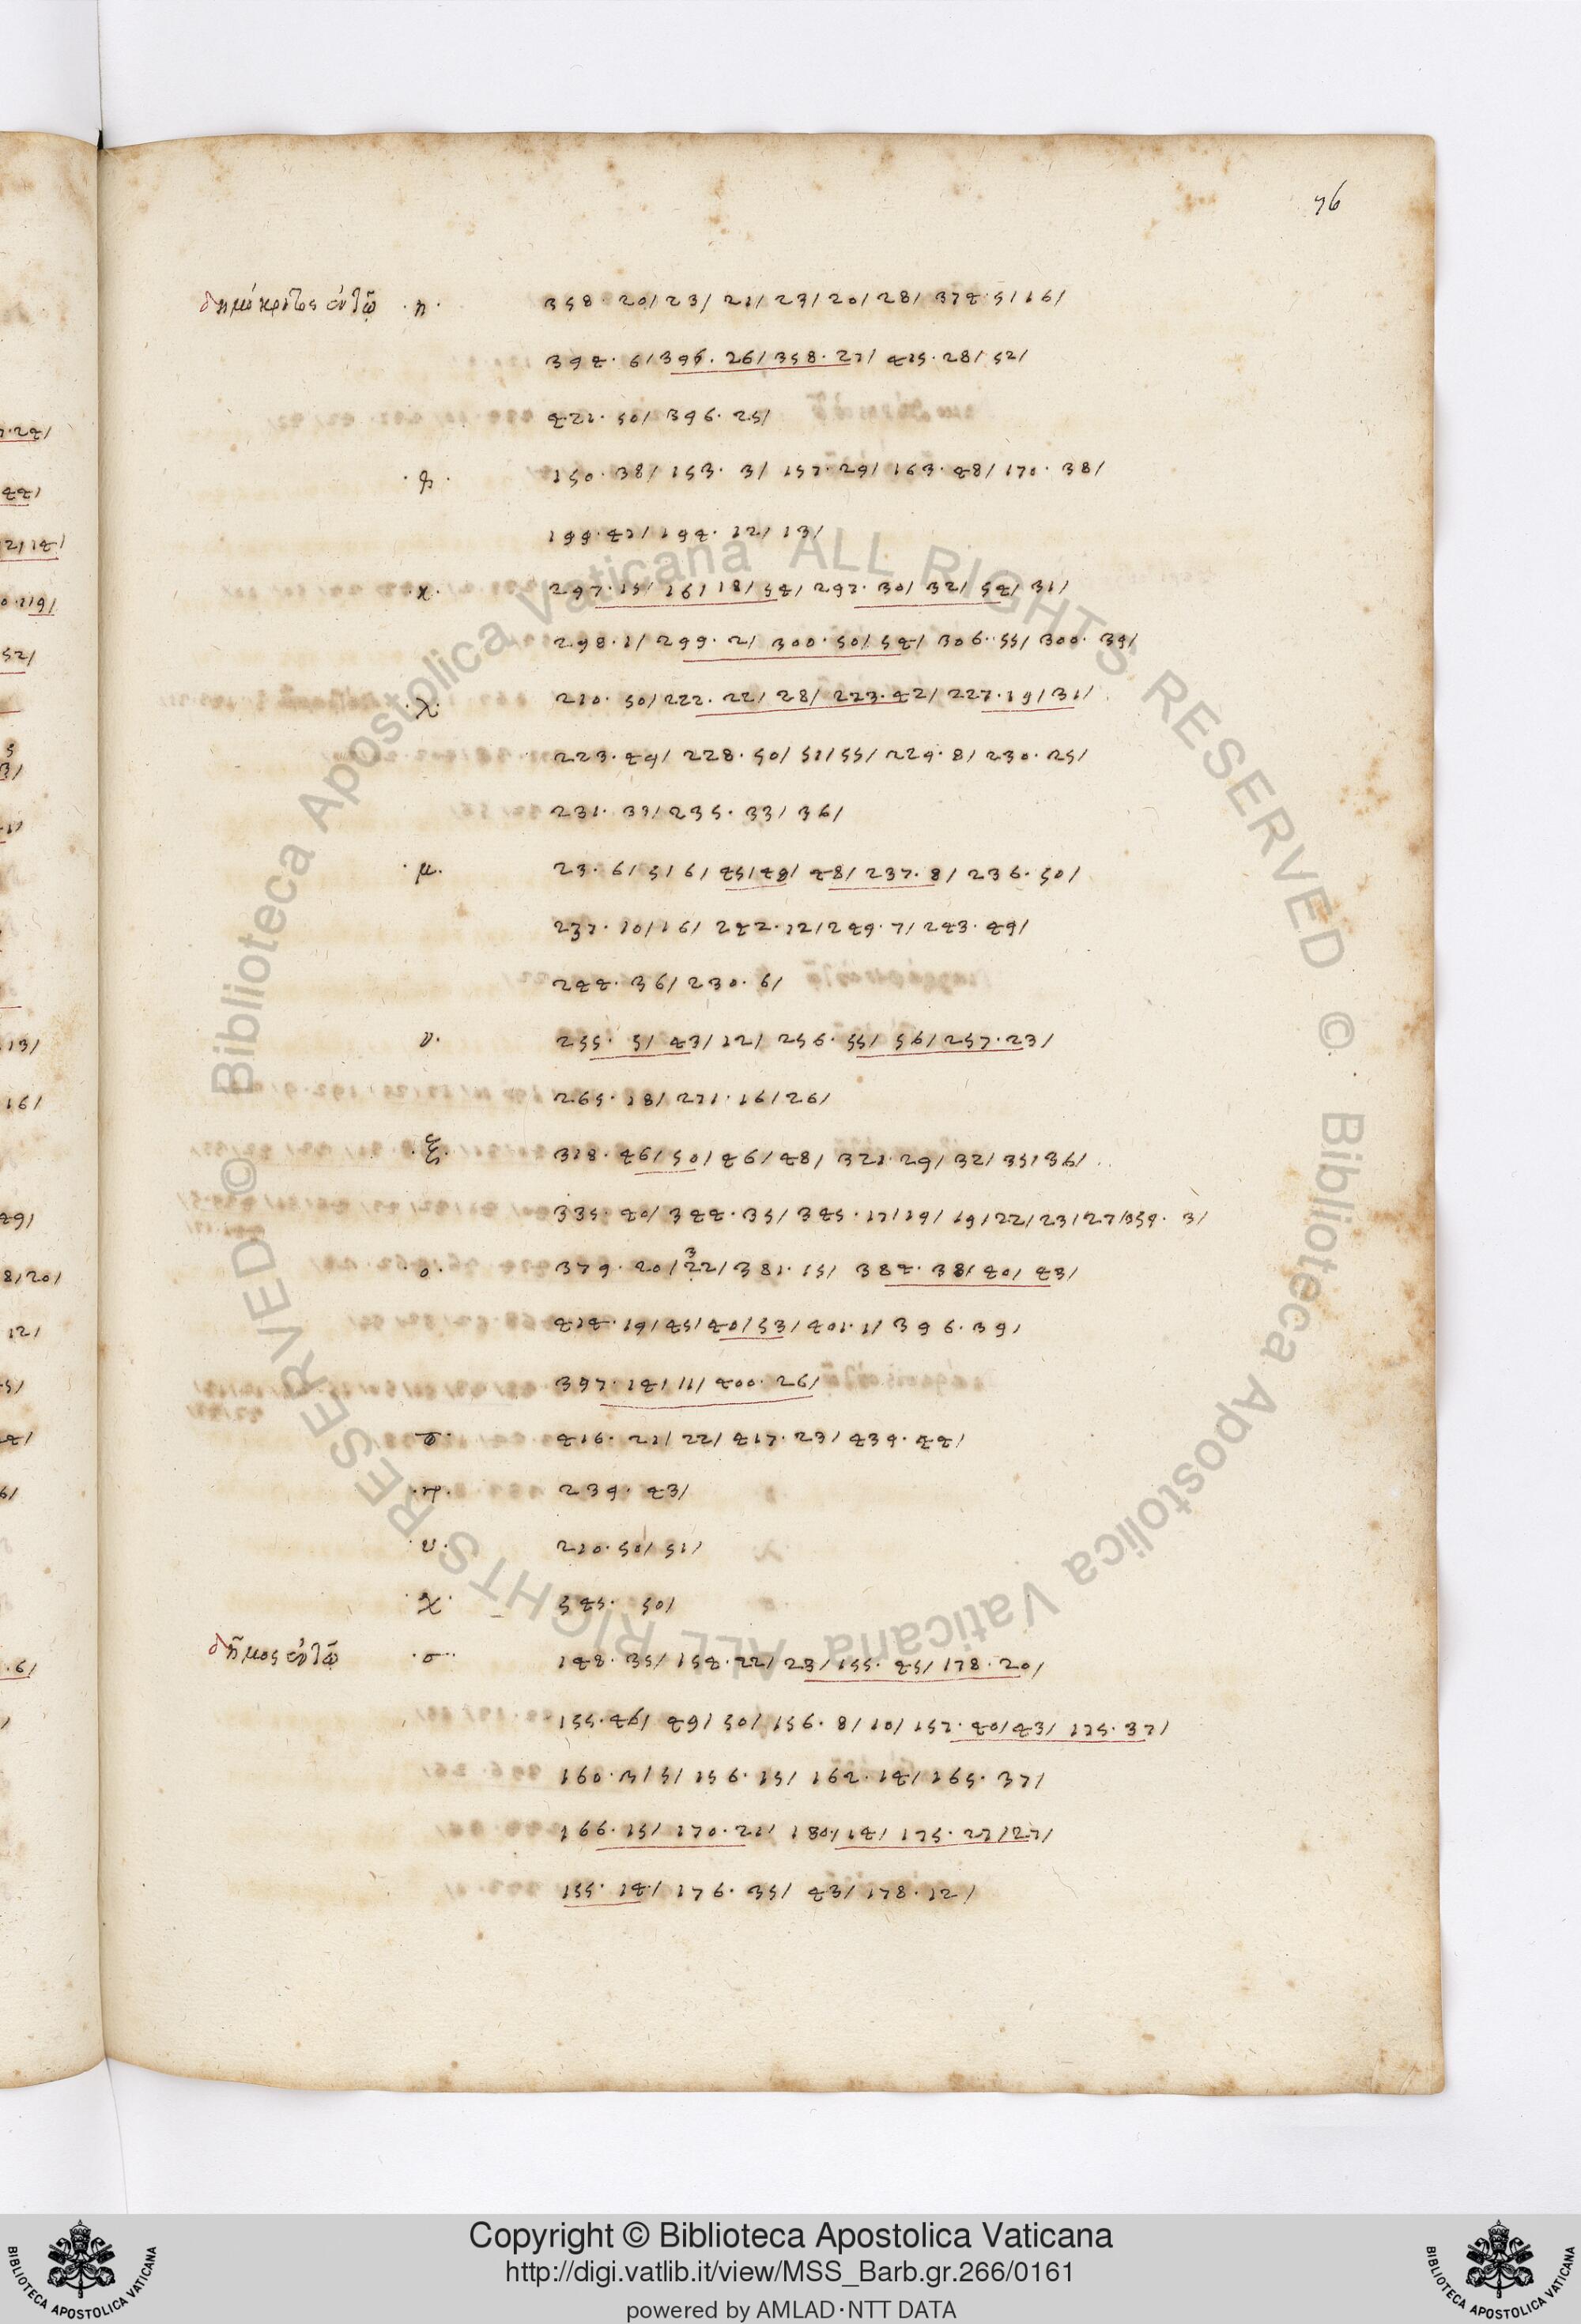 76
δημόκριτος ἐν τῷ · η · 358 · 20 / 23 / 21 / 23 / 20 / 28 / 374 · 5 / 16 /
394 · 6 / 396 · 26 / 358 · 27 / 415 · 28 / 52 /
421 · 50 / 396 · 25 /
150 · 38 / 153 · 3 / 157 · 29 / 163 · 48 / 170 · 38 /
199 · 41 / 194 · 12 / 13 /
· κ · 297 · 15 / 16 / 18 / 54 / 297 · 30 / 32 / 54 / 31 /
298 · 1 / 299 · 2 / 300 · 50 / 54 / 306 · 55 / 300 · 39 /
· λ · 210 · 50 / 222 · 22 / 28 / 223 · 42 / 227 · 19 / 31 /
223 · 49 / 228 · 50 / 51 / 55 / 229 · 8 / 230 · 25 /
231 · 33 / 235 · 33 / 36 /
· μ · 23 · 6 / 5 / 6 / 45 / 48 / 48 / 237 · 8 / 236 · 50 /
237 · 10 / 16 / 242 · 12 / 249 · 7 / 243 · 49 /
244 · 36 / 230 · 6 /
ν · 255 · 5 / 43 / 12 / 256 · 55 / 56 / 257 · 23 /
265 · 18 / 271 · 16 / 26 /
· ξ · 318 · 46 / 50 / 46 / 48 / 321 · 29 / 32 / 35 / 36 /
335 · 40 / 344 · 35 / 345 · 17 / 19 / 19 / 22 / 23 / 27 / 359 · 3 /
· ο · 379 · 20 / 22 / 381 · 15 / 384 · 38 / 40 / 43 /
3
414 · 19 / 45 / 40 / 53 / 401 · 1 / 396 · 39 /
397 · 14 / 11 / 400 · 26 /
416 · 21 / 22 / 417 · 23 / 439 · 44 /
239 · 43 /
· υ · 210 · 50 / 51 /
· χ · 545 · 50 /
δῆμος ἐν τῷ · σ · 148 · 35 / 154 · 22 / 23 / 155 · 45 / 178 · 20 /
155 · 46 / 49 / 50 / 156 · 8 / 10 / 157 · 40 / 43 / 175 · 37 /
160 · 3 / 5 / 156 · 15 / 162 · 14 / 165 · 37 /
166 · 15 / 170 · 21 / 180 / 14 / 175 · 27 / 27 /
155 · 14 / 176 · 35 / 43 / 178 · 12 /
© Biblioteca Apostolica Vaticana ALL RIGHTS RESERVED © Biblioteca Apostolica Vaticana ALL RIGHTS RESERVED
Copyright © Biblioteca Apostolica Vaticana
http://digi.vatlib.it/view/MSS_Barb.gr.266/0161
powered by AMLAD·NTT DATA
BIBLIOTECA APOSTOLICA VATICANA
BIBLIOTECA APOSTOLICA VATICANA